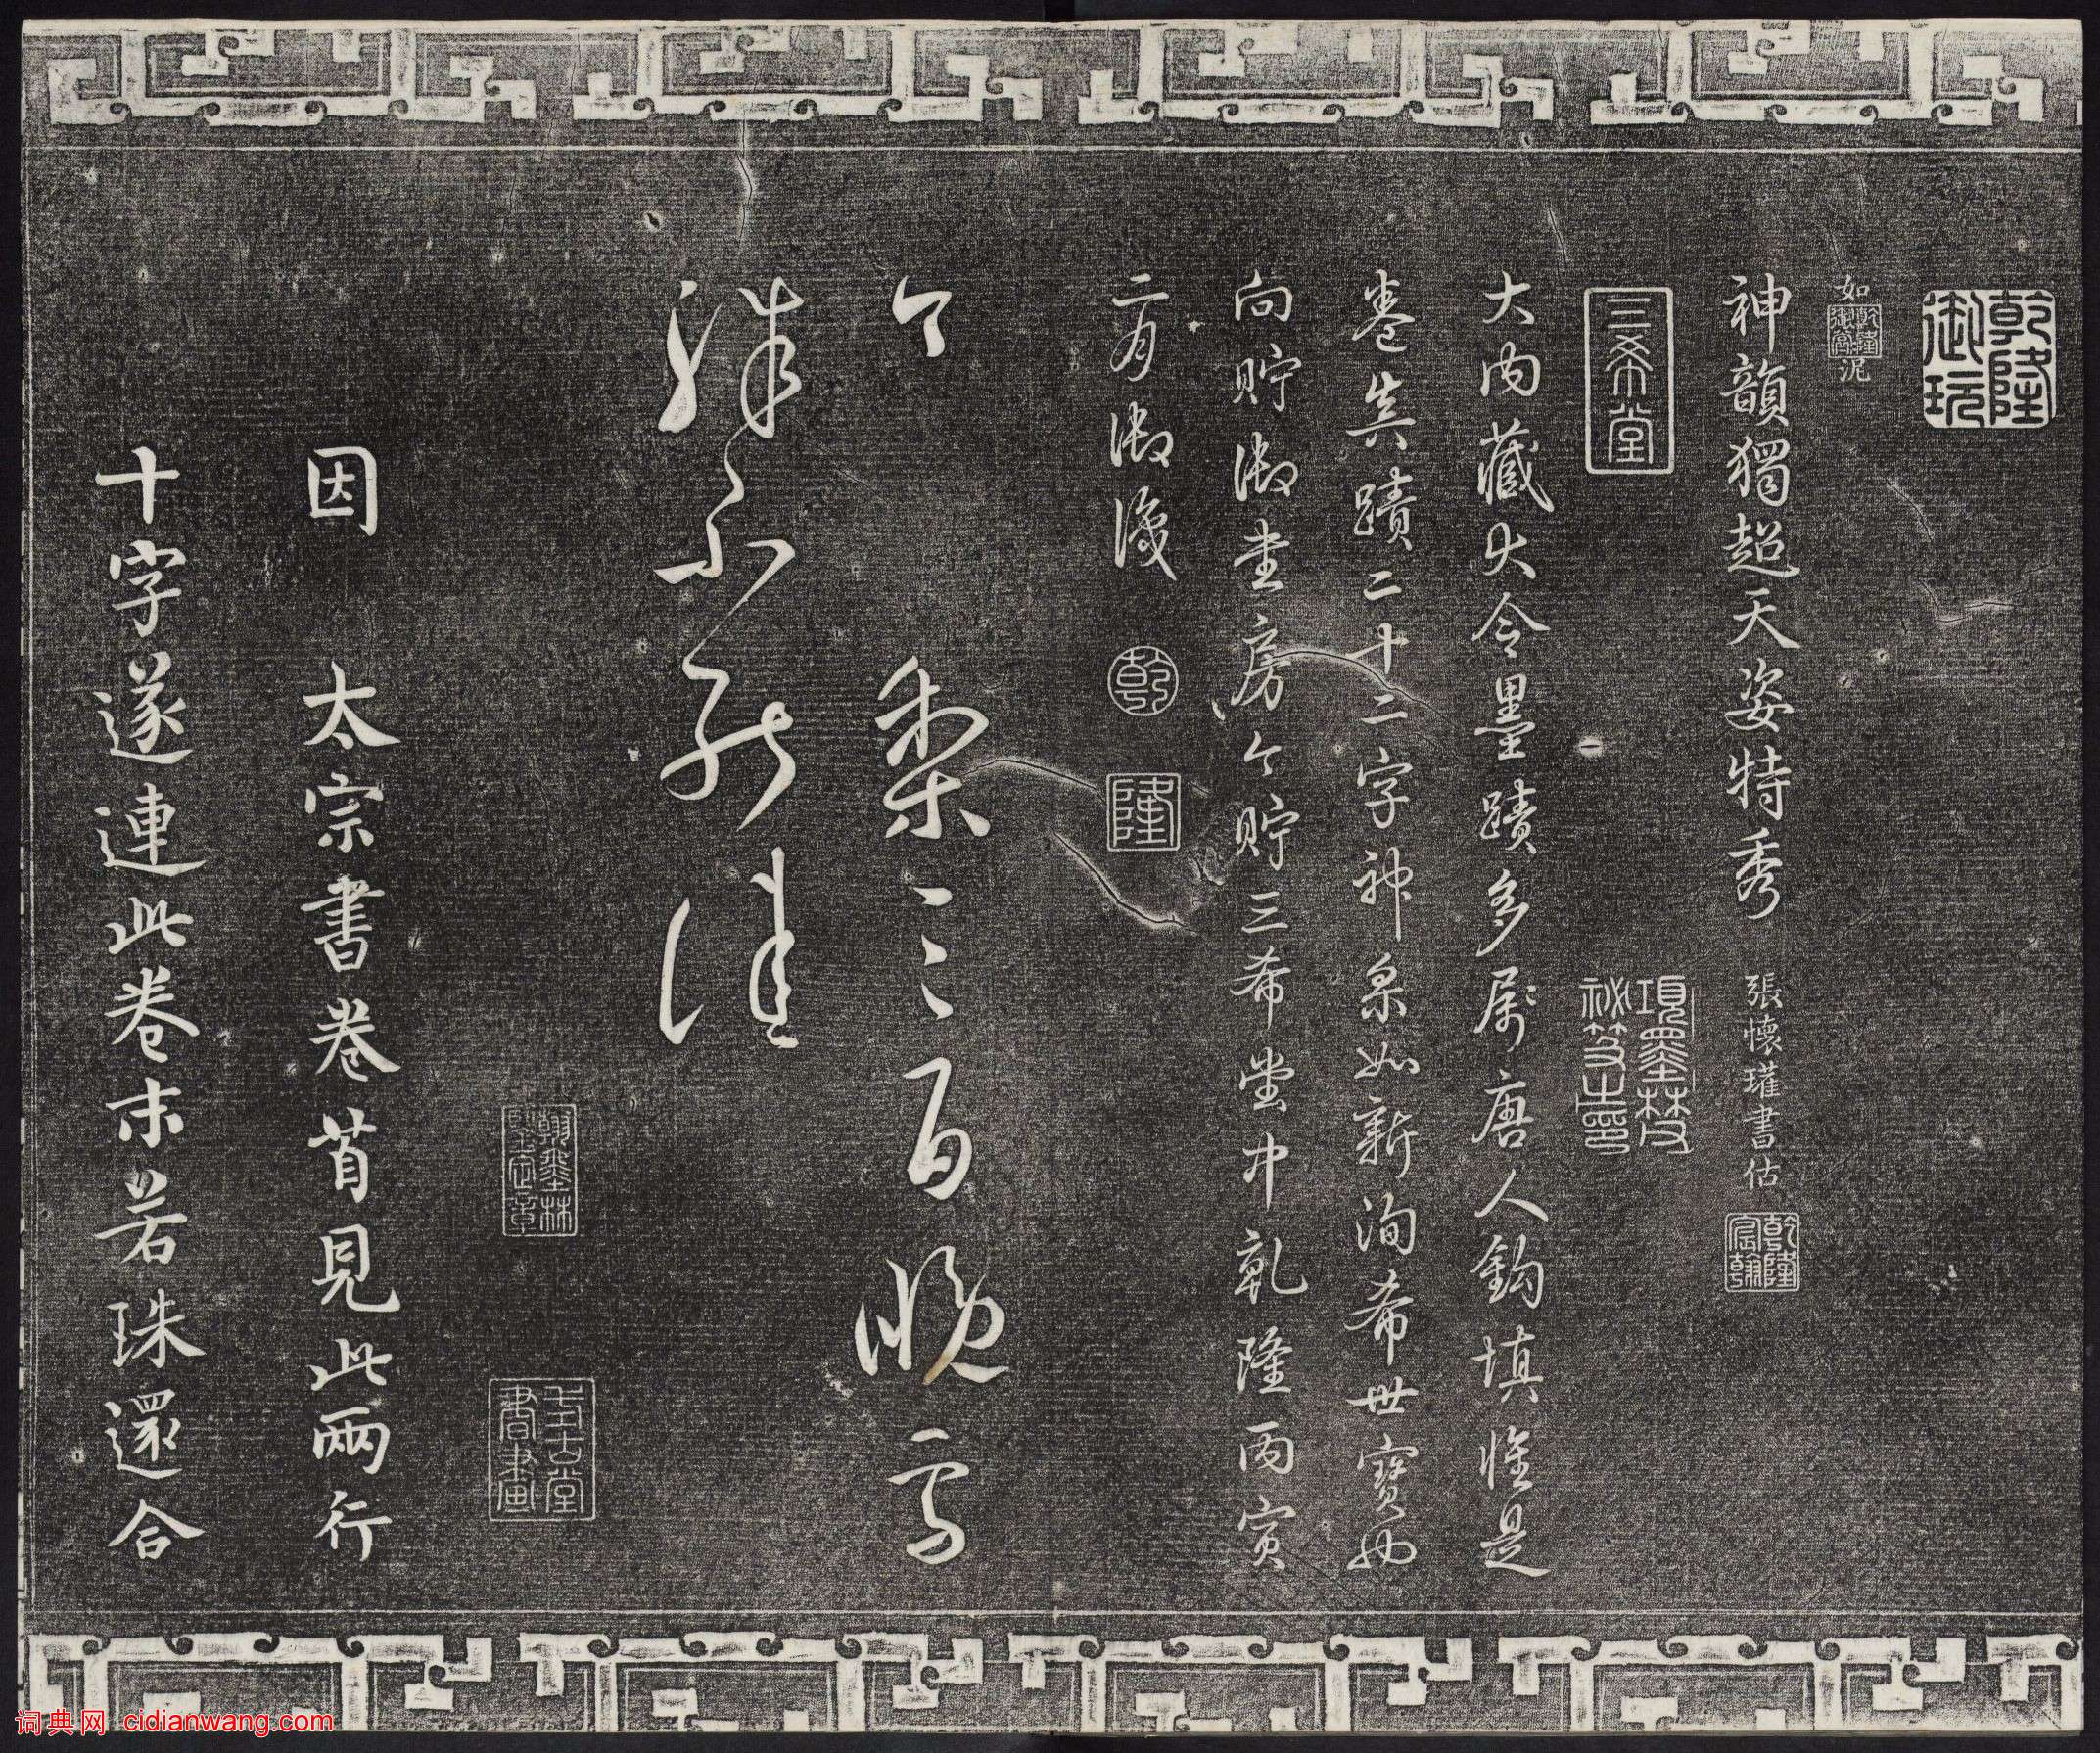 乾隆御玩
如
乾隆御賞
泥
神韻獨超天姿特秀
張懷瓘書估
乾隆宸翰
三希堂
項墨林祕笈之印
大內藏大令墨蹟多屬唐人鈎填惟是
卷真蹟二十二字神采如新洵希世寶也
向貯御書房今貯三希堂中乾隆丙寅
二月御識
乾
隆
今
梨三百晚雪
殊不能佳
書畫
因太宗書卷首見此兩行
十字遂連此卷末若珠還合
词典网 cidianwang.com